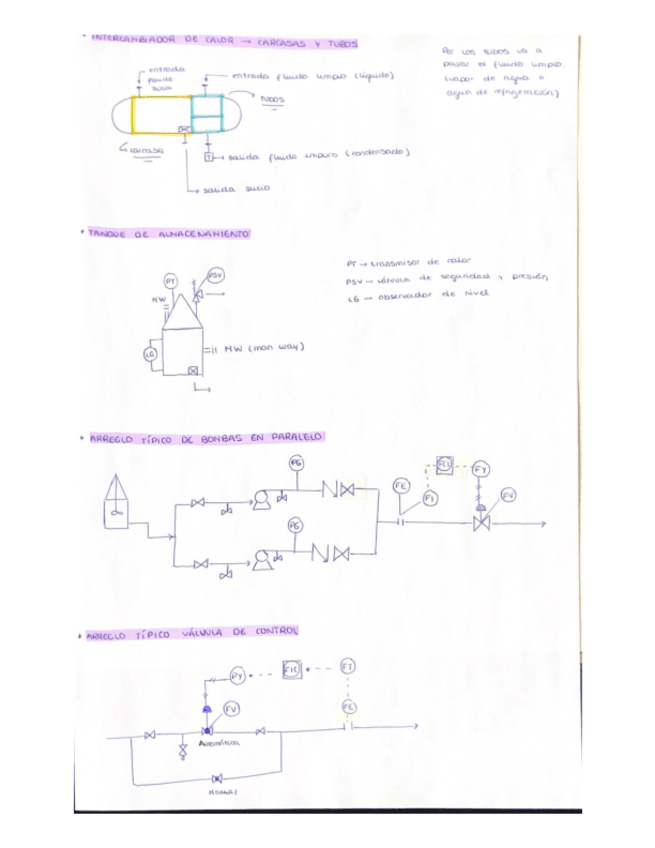 • INTERCAMBIADOR DE CALOR → CARCASAS Y TUBOS
Por los tubos va a
pasar el fluido limpio.
(vapor de agua o
agua de refrigeración)
entrada
fluido
sucio
entrada fluido limpio (líquido)
TUBOS
carcasa
T
salida fluido impuro (condensado)
salida sucio
• TANQUE DE ALMACENAMIENTO
PT → transmisor de
PSV → válvula de seguridad y presión
LG → observador de nivel
PT
PSV
MW
LG
MW (man way)
• ARREGLO TÍPICO DE BOMBAS EN PARALELO
PG
FE
FY
FV
PG
• ARREGLO TÍPICO VÁLVULA DE CONTROL
PY
FIC
FT
FV
FE
Automática
Manual